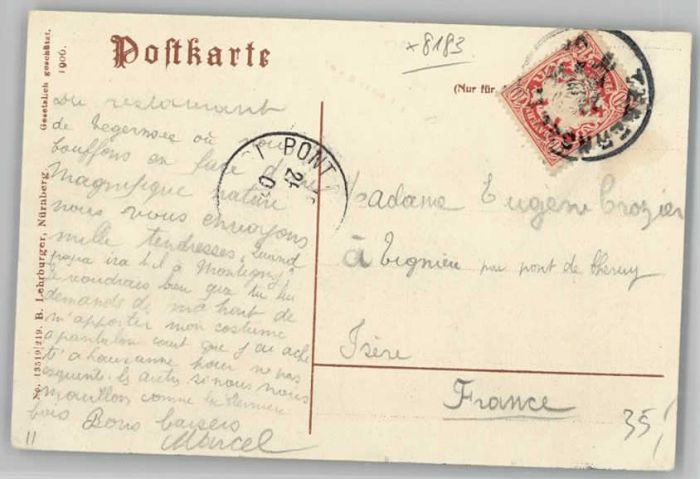 Postkarte
*8183
(Nur für
Gesetzlich geschützt.
1906.
No. 13519/219. B. Lehrburger, Nürnberg.
Du restaurant
de Tegernsee où nous
bouffons en face d'une
magnifique nature
nous vous envoyons
mille tendresses, quand
papa ira t-il à Montigny
je voudrais bien que tu lui
demandes de
m'apporter mon costume
a pantalon court que j'ai acheté
à Lausanne pour ne pas
les autres si nous nous
mouillons comme la dernière
fois Bons baisers
Marcel
PONT
24
TEGERNSEE
Madame Eugene Crozier
à Tignieu par pont de Cheruy
Isère
France
35,
11